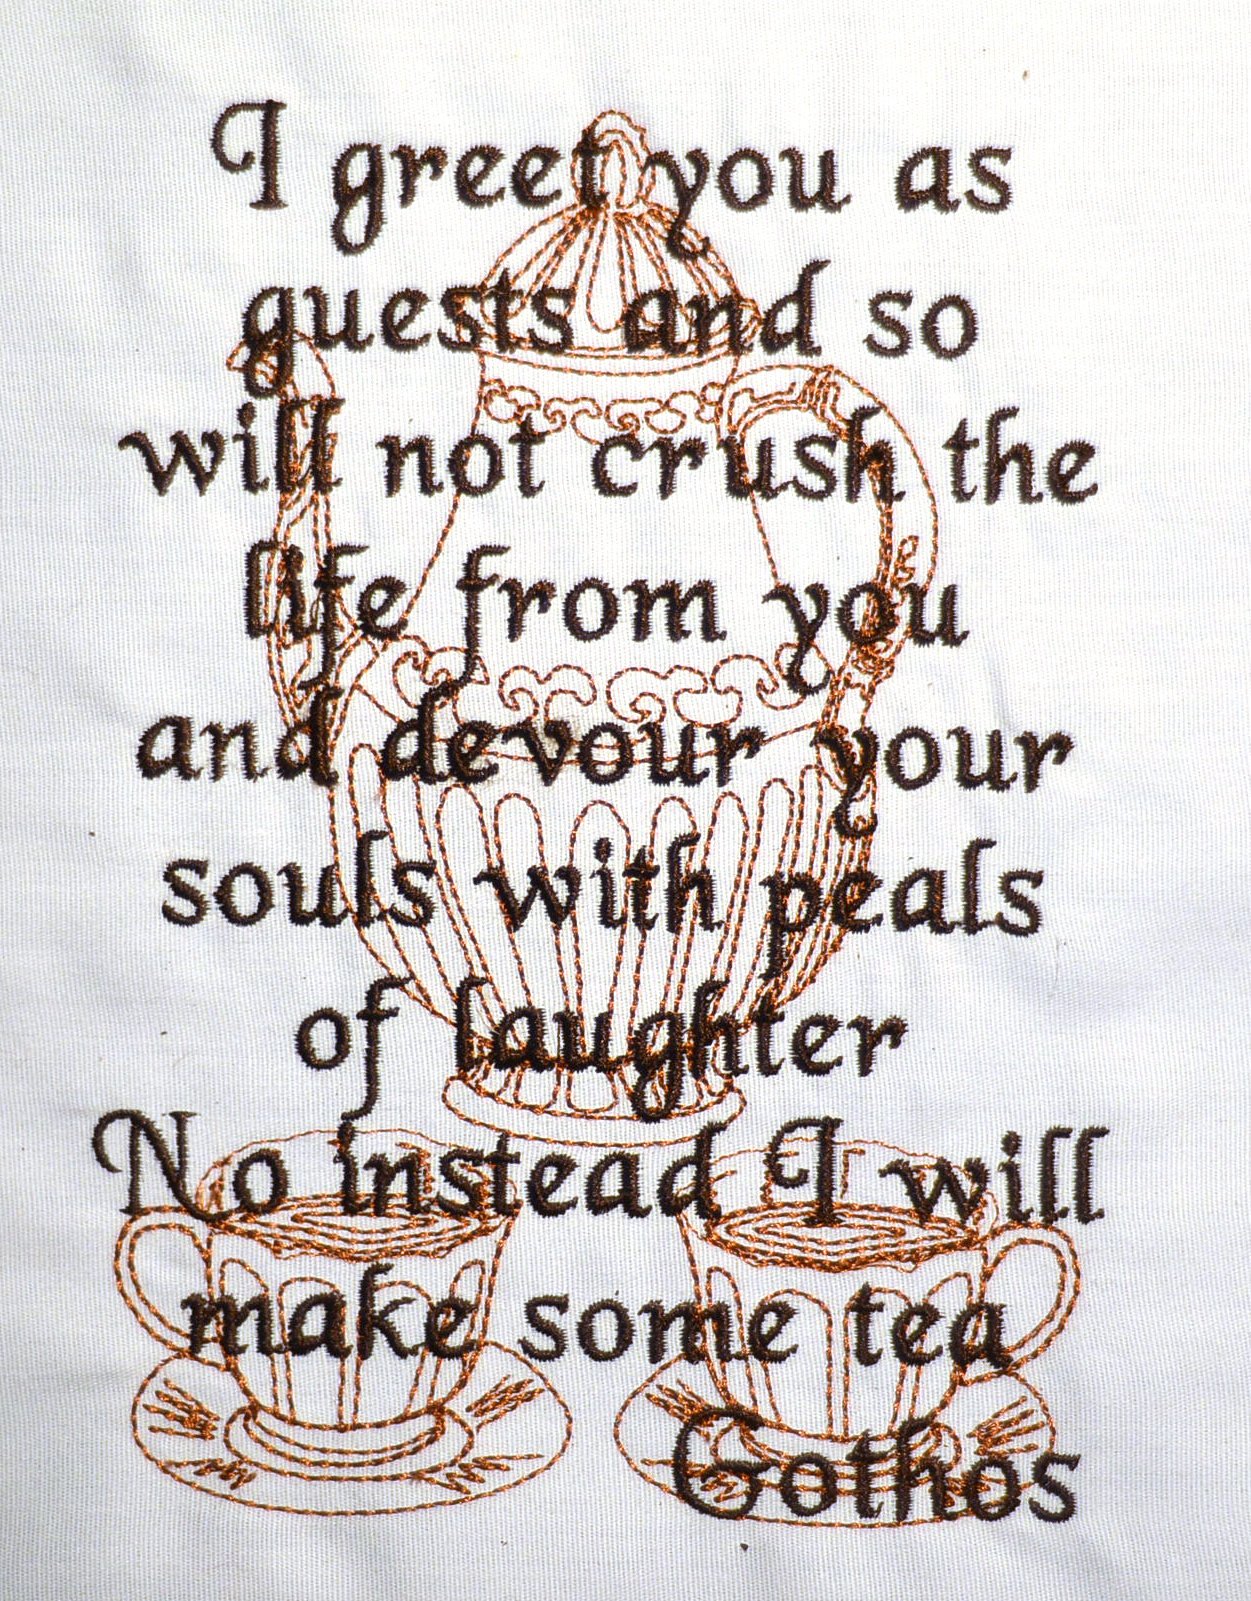 I greet you as
guests and so
will not crush the
life from you
and devour your
souls with peals
of laughter
No instead I will
make some tea
Gothos